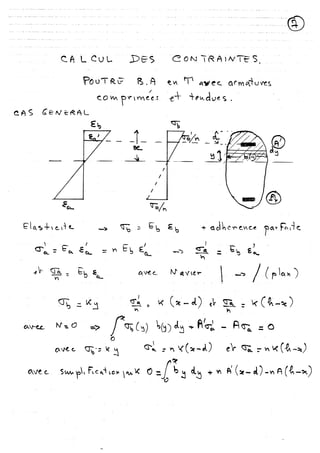 7
CALCUL DES CONTRAINTES.
POUTRE B.A en T avec armatures
comprimées et tendues.
CAS GENERAL
εb σb
εa' σa'/n d A'
x y b(y) dy
εa σa/n A
Elasticité → σb = Eb εb + adhérence parfaite
σa' = Ea εa' = n Eb εa' → σa'/n = Eb εa'
et σa/n = Eb εa avec Navier | → / (plan)
σb = Ky σa'/n = K (x-d) et σa/n = K(h-x)
avec N=0 => ∫0x σb(y) b(y) dy + A'σa' - Aσa = 0
avec σb = Ky σa' = nK(x-d) et σa = nK(h-x)
avec simplification par K 0 = ∫0x b y dy + n A'(x-d) - nA(h-x)